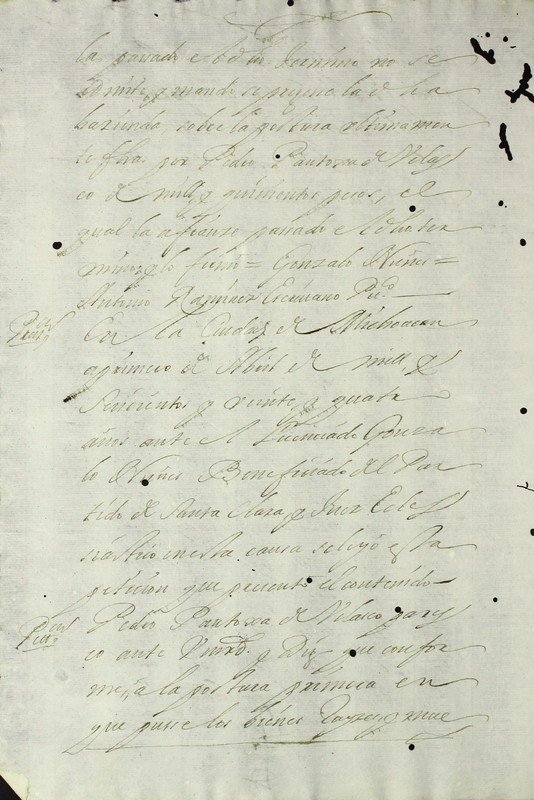 la
mitio, y mando se pregone la
haziendo, sobre la postura ultimamen
te fha por Pedro Pantoxa de Velas
co de mill y quinientos pesos, el
qual la afianzo pasado el dho ter
mino y lo firmo = Gonzalo Nuñes =
Antonio Ramires Escriuano Puco
En la Ciudad de Mechoacan
a primero de Abril de mill, y
seiscientos y veinte, y quatro
años ante el Licenciado Gonza
lo Nuñes Beneficiado del Par
tido de Santa Clara y Juez Ecles
siastico en esta causa se leyó esta
peticion que presentó el contenido
Pedro Pantoxa de Velasco pares
co ante Vmrd. y Digo que confor
me, a la postura primera en
que puse los bienes Rayzes, y mue